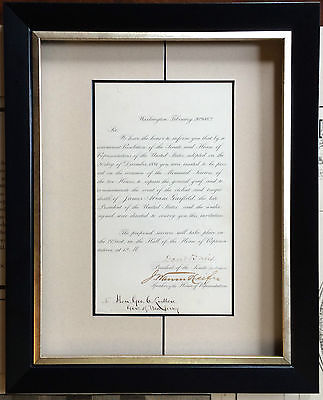 Washington, February 20th 1882
Sir
We have the honor to inform you that by a
concurrent Resolution of the Senate and House of
Representatives of the United States, adopted on the
of December 1881 you were invited to be pres
ent on the occasion of the Memorial Service of
the two Houses to express the general grief, and to
commemorate the event of the violent and tragic
death of James Abram Garfield the late
President of the United States and the under
signed were directed to convey you this invitation.
The proposed services will take place on
the in the Hall of the House of Represen
tatives at M
David Davis
President of the Senate
J Warren Keifer
Speaker of the House of Representatives
To Hon. Geo. C. Ludlow
Gov. of New Jersey